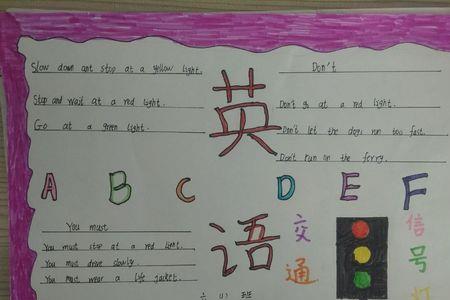 Slow down ant stop at a yellow light.
Stop and wait at a red light.
Go at a green light.
英
Don't
Don't go at a red light.
Don't let the dogs run too fast.
Don't run on the ferry.
A B C D E F
You must
You must stop at a red light.
You must drive slowly.
You must wear a life jacket.
语
交
通
信
号
灯